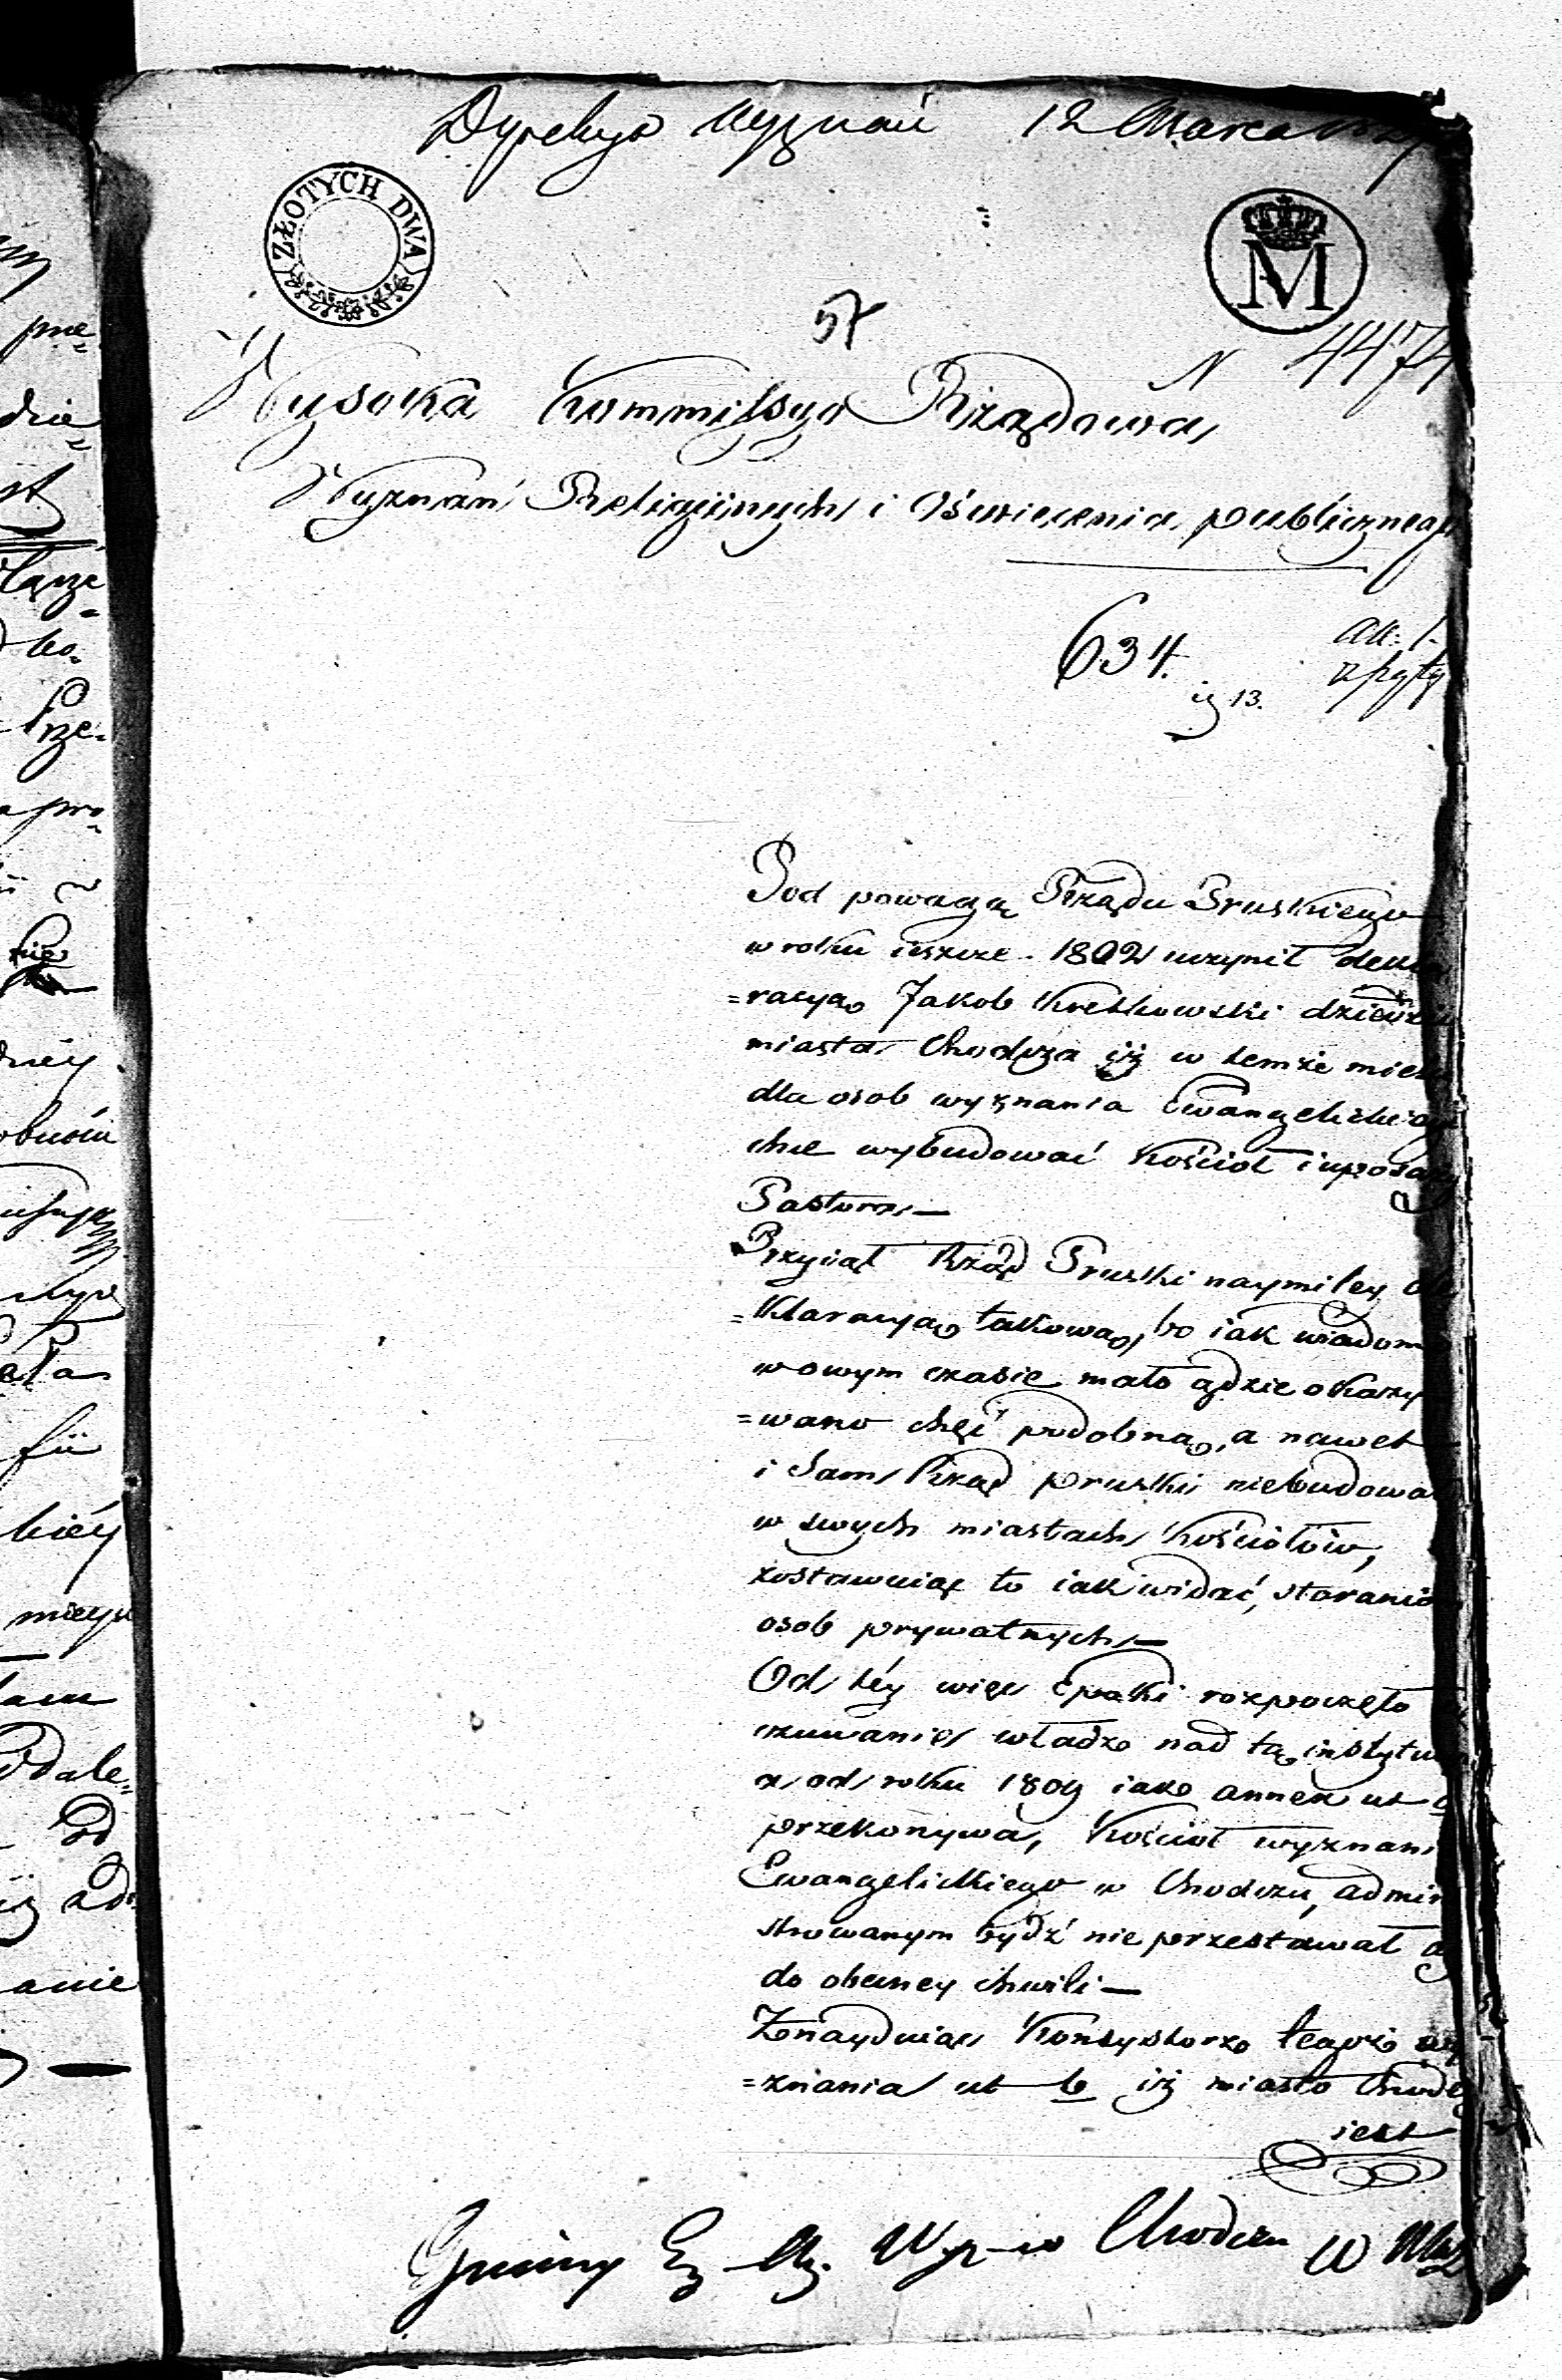 Dyrekcya Wyznań 12 Marca
ZŁOTYCH DWA
M
57
N 4474
Wysoka Kommissya Rządowa
Wyznań Religiinych i Oświecenia publicznego
634.
13.
Pod powagą Rządu Pruskiego
w roku ieszcze 1802 uczynił dekla
=racyą Jakob Kretkowski dziedzic
miasta Chodcza iż w temże mieś
dla osob wyznania Ewangelickieg
chce wybudować Kościoł i uposaż
Pastora —
Przyiął Rząd Pruski naymiley de
=klaracyą takową, bo iak wiadom
w owym czasie mało gdzie okazy
=wano chęć podobną, a nawet
i Sam Rząd pruski niebudował
w swych miastach Kościołów,
zostawuiąc to iak widać, staraniu
osob prywatnych —
Od téy więc Epoki rozpoczęto
czuwanie władzo nad tą instytu
a od roku 1809 iako annex ut a
przekonywa, Kościoł wyznani
Ewangelickiego w Chodczu, admin
strowanym bydź nie przestawał aż
do obecney chwili —
Znayduiąc Konsystorz tegoż wy
=znania ut b iż miasto Chode
iest
Gminy Ew. Wyz w Chodczu